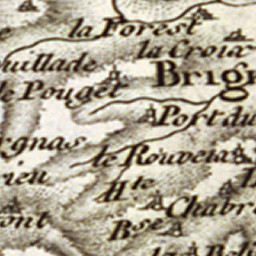 la Forest
la Croix
uillade
Brig
le Pouget
Port du
rgnas
le Rouveix
rieu
Hte
Chabr
Bse
ont
la